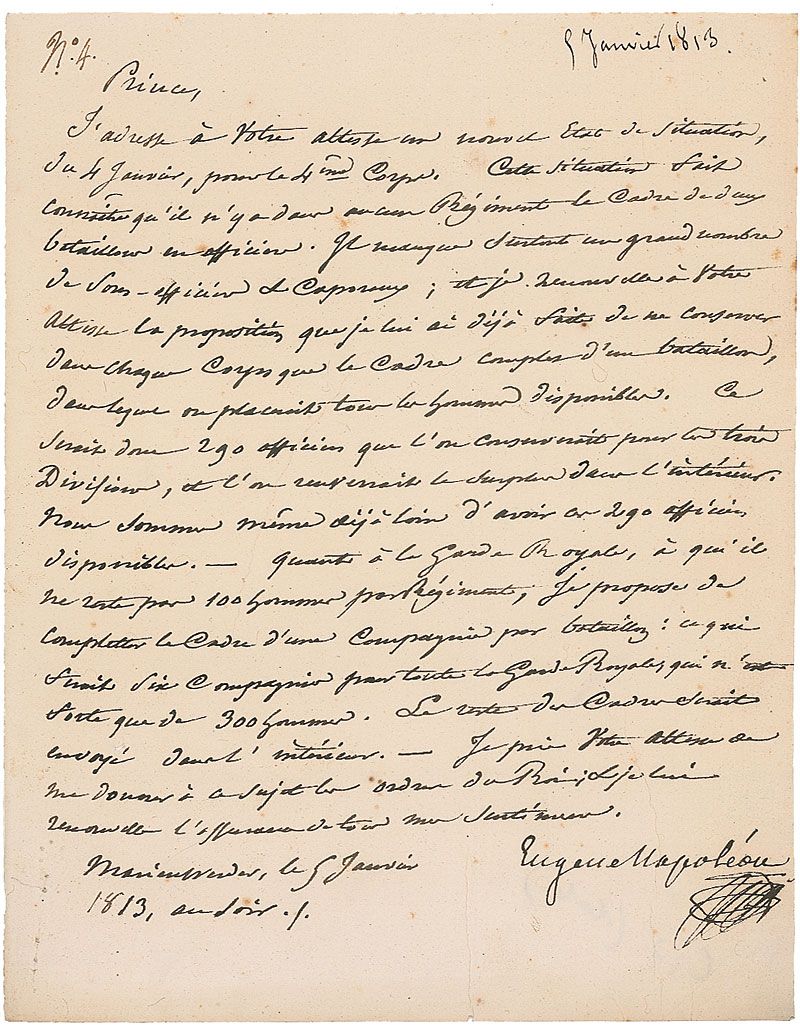 N.º 4.
5 Janvier 1813.
Prince,
J'adresse à Votre altesse un nouvel Etat de situation,
du 4 Janvier, pour le 4me Corps. Cette situation fait
connaître qu'il n'y a dans aucun Régiment le Cadre de deux
bataillons en officiers. Il manque surtout un grand nombre
de Sous-officiers & Caporaux ; et je renouvelle à Votre
altesse la proposition que je lui ai déjà faite de ne conserver
dans chaque Corps que le Cadre complet d'un bataillon,
dans lequel on placerait tous les hommes disponibles. Ce
serait donc 290 officiers que l'on conserverait pour les trois
Divisions, et l'on renverrait le surplus dans l'intérieur.
Nous sommes même déjà loin d'avoir ces 290 officiers
disponibles. — quant à la Garde Royale, à qui il
ne reste pas 100 hommes par Régiment, Je propose de
completter le Cadre d'une Compagnie par bataillon : ce qui
serait six Compagnies pour toute la Garde Royale, qui n'est
forte que de 300 hommes. Le reste des Cadres serait
envoyé dans l'intérieur. — Je prie Votre altesse de
me donner à ce sujet les ordres du Roi ; & je lui
renouvelle l'assurance de tous mes sentimens.
Marienwerder, le 5 Janvier
1813, au soir ./.
Eugene Napoléon